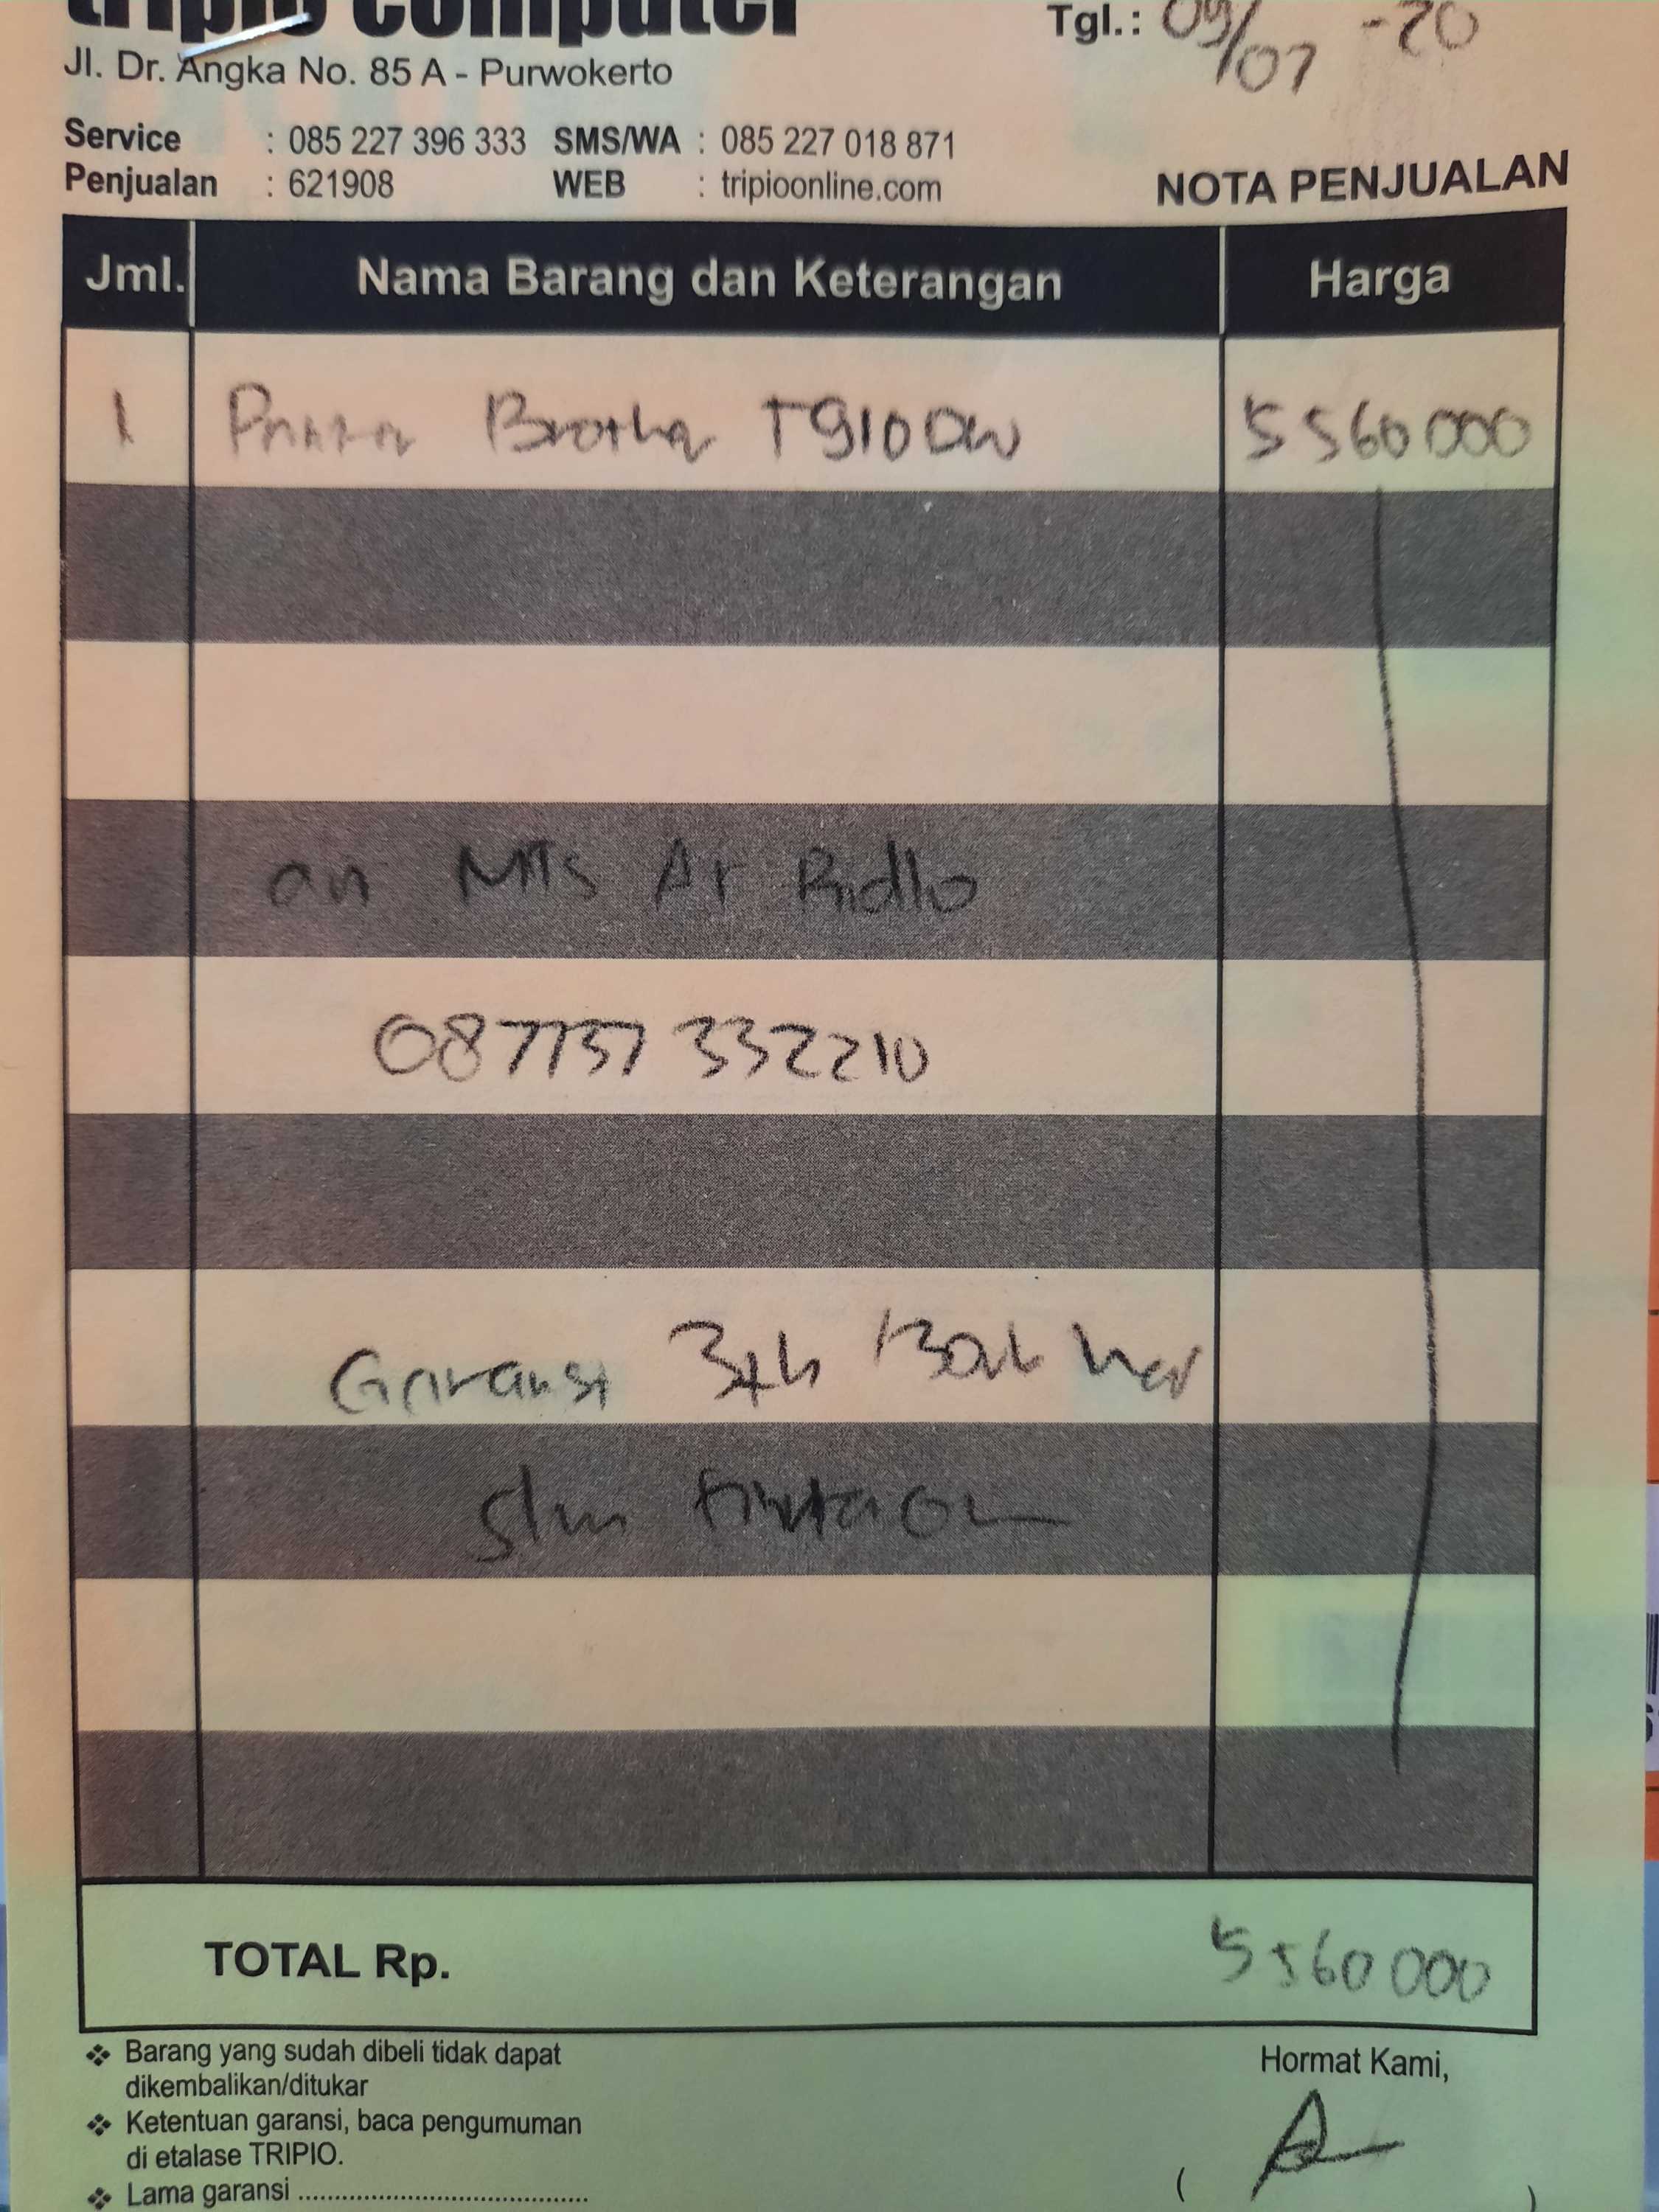 tripio computer
Tgl.: 09/07 -20
Jl. Dr. Angka No. 85 A - Purwokerto
Service : 085 227 396 333 SMS/WA : 085 227 018 871
Penjualan : 621908 WEB : tripioonline.com
NOTA PENJUALAN
Jml. Nama Barang dan Keterangan Harga
1 Printer Brother T910DW 5560000
an MTs Ar Ridlo
087737 332210
Garansi 3th
tinta
TOTAL Rp. 5560000
❖ Barang yang sudah dibeli tidak dapat
dikembalikan/ditukar
Hormat Kami,
❖ Ketentuan garansi, baca pengumuman
di etalase TRIPIO.
❖ Lama garansi ............................................
( )